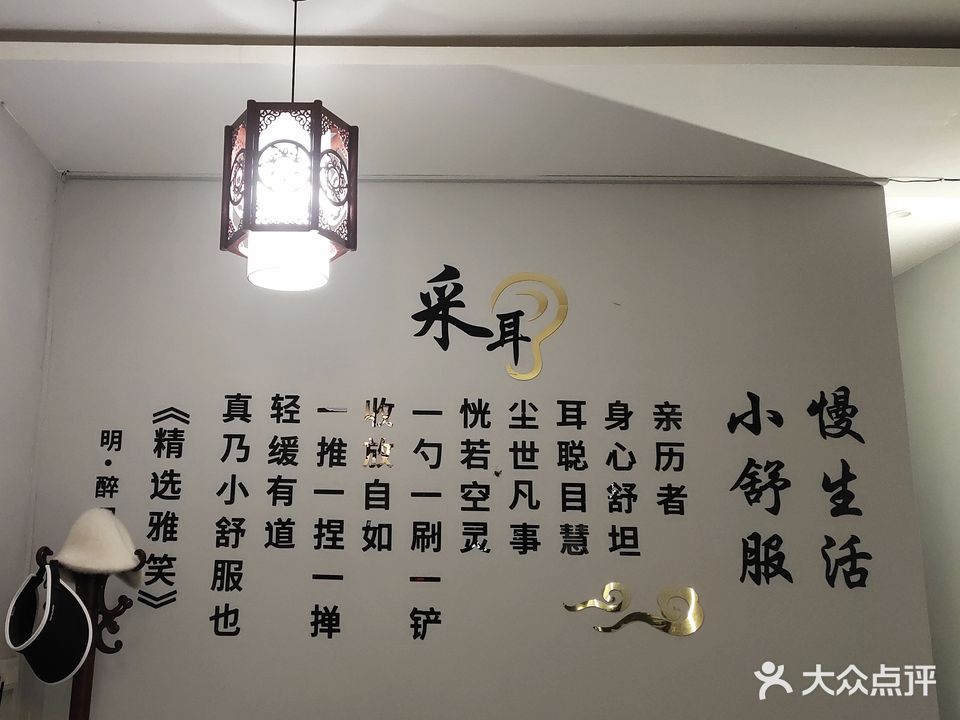 采耳
慢生活
小舒服
亲历者
身心舒坦
耳聪目慧
尘世凡事
恍若空灵
一勺一刷一铲
收放自如
一推一捏一掸
轻缓有道
真乃小舒服也
《精选雅笑》
明·醉
大众点评